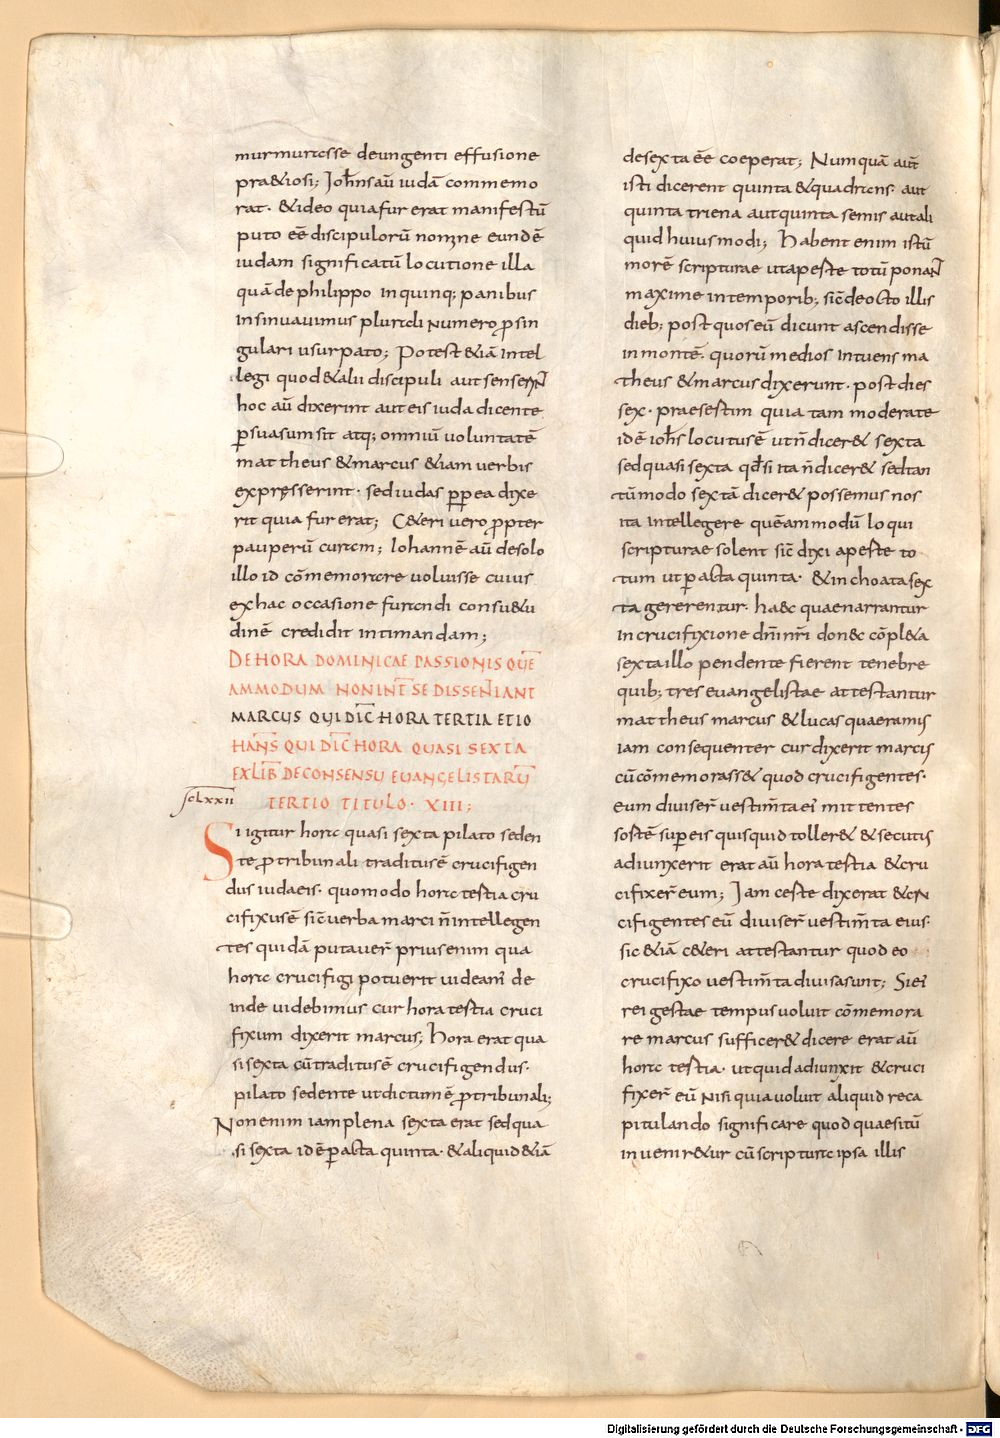 murmurasse de ungenti effusione
pra&iosi; Ioh̄ns aū iudā commemo
rat· &ideo quia fur erat manifestū
puto eē discipulorū nomine eundē
iudam significatū locutione illa
quā de philippo in quinq; panibus
insinuavimus plurali numero ꝓ sin
gulari usurpato; Potest &iā intel
legi quod &alii discipuli aut senserNT
hoc aū dixerint aut eis iuda dicente
ꝑsuasum sit atq; omniū voluntatē
mattheus &marcus &iam verbis
expresserint· sed iudas ꝓpea dixe
rit quia fur erat; C&eri vero ꝓpter
pauperū curam; Iohannē aū de solo
illo id cōmemorare voluisse cuius
ex hac occasione furandi consu&u
dinē credidit intimandam;
DE HORA DOMINICAE PASSIONIS QUĒ
AMMODUM NON INT̄ SE DISSENTIANT
MARCUS QUI DIC̄ HORA TERTIA ET IO
HAN̄S QUI DIC̄ HORA QUASI SEXTA
EX LIB̄ DE CONSENSU EUANGELISTARŪ
scLxxii
TERTIO TITULO· XIII;
Si igitur hora quasi sexta pilato seden
te ꝓ tribunali traditus ē crucifigen
dus iudaeis· quomodo hora testia cru
cifixus ē sic̄ verba marci n̄ intellegen
tes quidā putaver̄ prius enim qua
hora crucifigi potuerit videam̄ de
inde videbimus cur hora testia cruci
fixum dixerit marcus; Hora erat qua
si sexta cū traditus ē crucifigendus·
pilato sedente ut dictum ē ꝓ tribunali;
Non enim iam plena sexta erat sed qua
si sexta id ē ꝑacta quinta· &aliquid &iā
de sexta eē coeperat; Numquā aut̄
isti dicerent quinta &quadrans· aut
quinta triena aut quinta semis aut ali
quid huius modi; Habent enim istū
morē scripturae ut a peste totū ponaNT
maxime in temporib; sic̄ de octo illis
dieb; post quos eū dicunt ascendisse
in montē· quorū medios intuens ma
theus &marcus dixerunt· post dies
sex· praesestim quia tam moderate
idē ioh̄s locutus ē ut n̄ dicer& sexta
sed quasi sexta qđ si ita n̄ dicer& sed tan
tū modo sextā dicer& possemus nos
ita intellegere quēammodū loqui
scripturae solent sic̄ dixi a peste to
tum ut ꝑacta quinta· &inchoata sex
ta gererentur· haec quae narrantur
in crucifixione dn̄i nr̄i donec cōpl&a
sexta illo pendente fierent tenebre
quib; tres evangelistae attestantur
mattheus marcus &lucas quaeramus
iam consequenter cur dixerit marcus
cū cōmemorass& quod crucifigentes·
eum diviser̄ vestim̄ta ei mittentes
sostē sup eis quis quid toller& &secutus
adiunxerit erat aū hora testia &cru
cifixer̄ eum; Iam ceste dixerat &cru
cifigentes eū diviser̄ vestim̄ta eius·
sic &iā c&eri attestantur quod eo
crucifixo vestim̄ta divisa sunt; Si ei
rei gestae tempus voluit cōmemora
re marcus suffice r& dicere erat aū
hora testia· ut quid adiunxit &cruci
fixer̄ eū nisi quia voluit aliquid reca
pitulando significare quod quaesitū
inveni r&ur cū scriptura ipsa illis
Digitalisierung gefördert durch die Deutsche Forschungsgemeinschaft - DFG